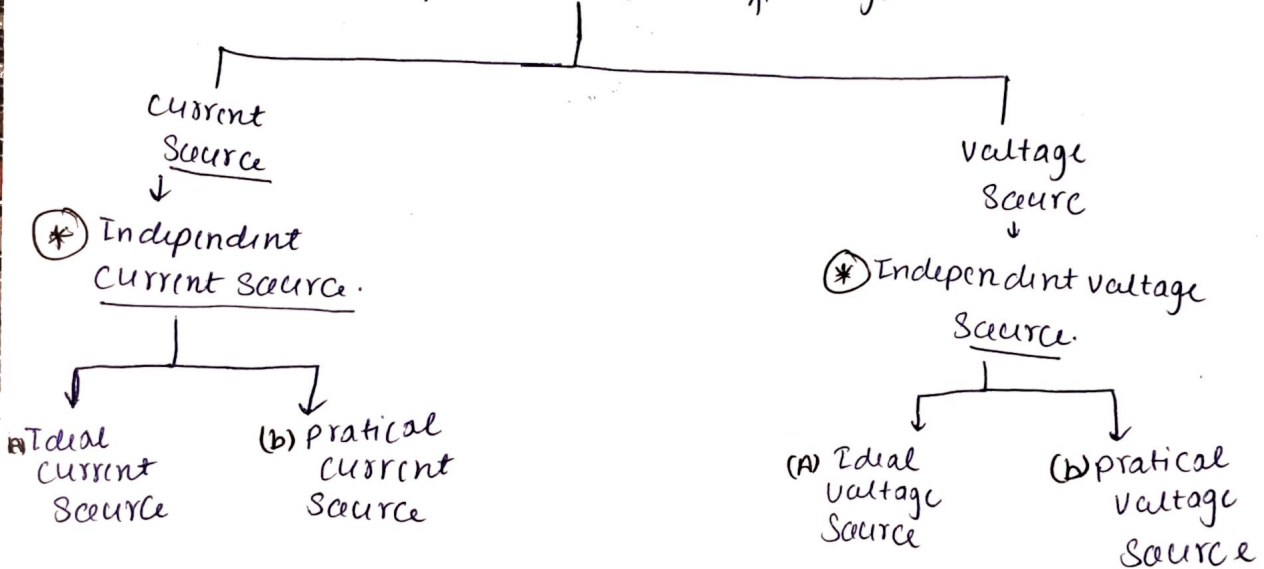 Current
Source
Independent
Current Source.
(A) Ideal
Current
Source
(b) Pratical
Current
Source
Valtage
Sourc
Independent valtage
Source.
(A) Ideal
Valtage
Source
(b) pratical
Valtage
Source